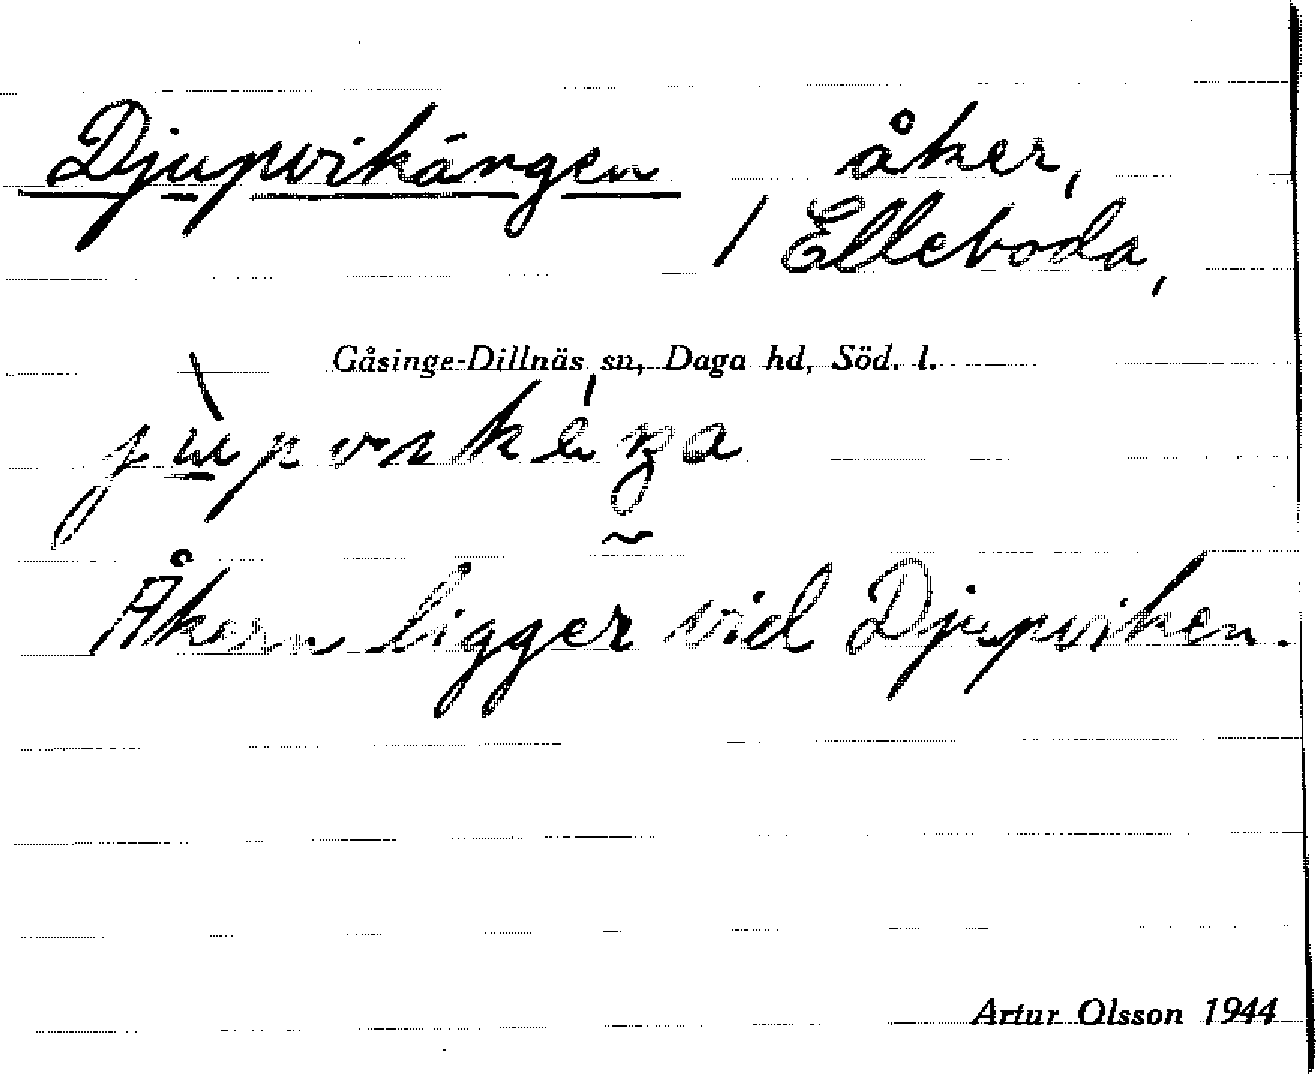 Djupvikängen åker,
/ Elleboda,
Gåsinge-Dillnäs sn, Daga hd, Söd. l.
Åkern ligger vid Djupviken.
Artur Olsson 1944